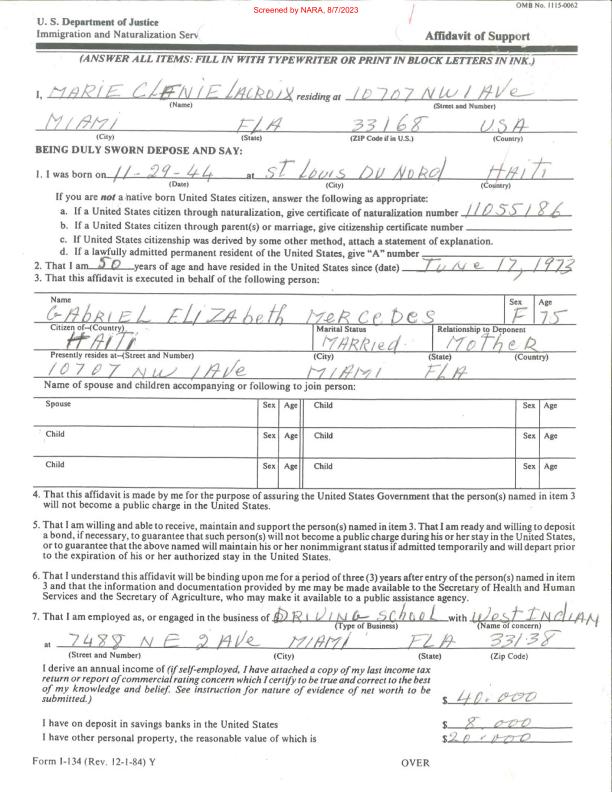 Screened by NARA, 8/7/2023
OMB No. 1115-0062
U. S. Department of Justice
Immigration and Naturalization Serv
Affidavit of Support
(ANSWER ALL ITEMS: FILL IN WITH TYPEWRITER OR PRINT IN BLOCK LETTERS IN INK.)
I, MARIE CLENIE LACROIX residing at 10707 NW 1 AVe
(Name) (Street and Number)
MIAMI FLA 33168 USA
(City) (State) (ZIP Code if in U.S.) (Country)
BEING DULY SWORN DEPOSE AND SAY:
1. I was born on 11-29-44 at ST LOUIS DU NORD HAITI
(Date) (City) (Country)
If you are not a native born United States citizen, answer the following as appropriate:
a. If a United States citizen through naturalization, give certificate of naturalization number 11055186
b. If a United States citizen through parent(s) or marriage, give citizenship certificate number
c. If United States citizenship was derived by some other method, attach a statement of explanation.
d. If a lawfully admitted permanent resident of the United States, give "A" number
2. That I am 50 years of age and have resided in the United States since (date) JUNE 17, 1973
3. That this affidavit is executed in behalf of the following person:
Name Sex Age
GAbRIEL ELIZAbeth MERCEDES F 75
Citizen of-(Country) Marital Status Relationship to Deponent
HAITI MARRIED MOTHER
Presently resides at-(Street and Number) (City) (State) (Country)
10707 NW 1AVe MIAMI FLA
Name of spouse and children accompanying or following to join person:
Spouse Sex Age Child Sex Age
Child Sex Age Child Sex Age
Child Sex Age Child Sex Age
4. That this affidavit is made by me for the purpose of assuring the United States Government that the person(s) named in item 3
will not become a public charge in the United States.
5. That I am willing and able to receive, maintain and support the person(s) named in item 3. That I am ready and willing to deposit
a bond, if necessary, to guarantee that such person(s) will not become a public charge during his or her stay in the United States,
or to guarantee that the above named will maintain his or her nonimmigrant status if admitted temporarily and will depart prior
to the expiration of his or her authorized stay in the United States.
6. That I understand this affidavit will be binding upon me for a period of three (3) years after entry of the person(s) named in item
3 and that the information and documentation provided by me may be made available to the Secretary of Health and Human
Services and the Secretary of Agriculture, who may make it available to a public assistance agency.
7. That I am employed as, or engaged in the business of DRIVING SCHOOL with West INDIAN
(Type of Business) (Name of concern)
at 7488 NE 2 AVe MIAMI FLA 33138
(Street and Number) (City) (State) (Zip Code)
I derive an annual income of (if self-employed, I have attached a copy of my last income tax
return or report of commercial rating concern which I certify to be true and correct to the best
of my knowledge and belief. See instruction for nature of evidence of net worth to be
submitted.) $ 40.000
I have on deposit in savings banks in the United States $ 8.000
I have other personal property, the reasonable value of which is $ 20.000
Form I-134 (Rev. 12-1-84) Y OVER